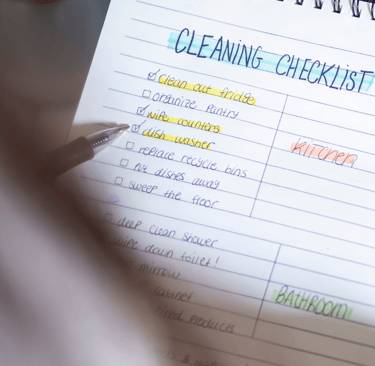 CLEANING CHECKLIST
clean out fridge
organize pantry
wipe counters
dish washer
replace recycle bins
put dishes away
sweep the floor
kitchen
deep clean shower
wipe down toilet!
mirror
cabinet
products
BATHROOM